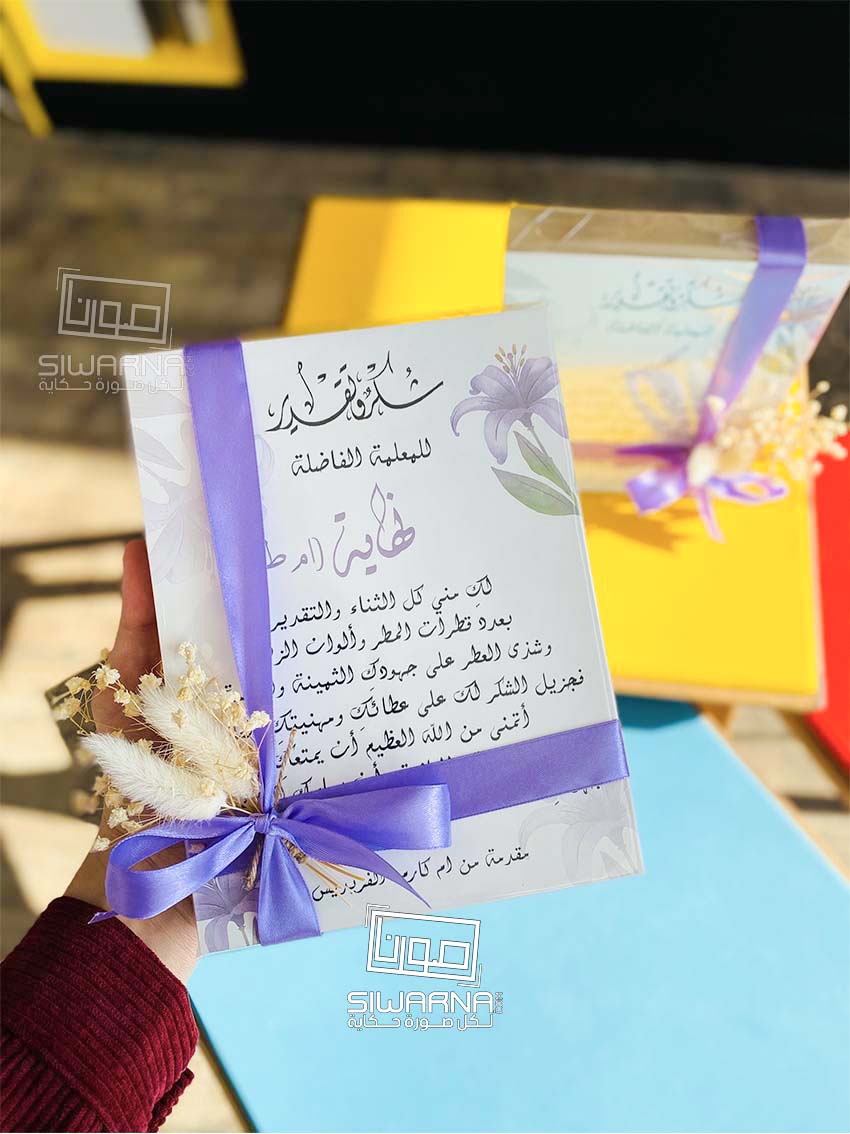 صورنا
SIWARNA.COM
لكل صورة حكاية
شكر وتقدير
شكر وتقدير
للمعلمة الفاضلة
نهاية (ام
لكِ مني كل الثناء والتقدير
بعدد قطرات المطر وألوان
وشذى العطر على جهودكِ الثمينة
فجزيل الشكر لك على عطائكِ ومهنيتكِ
أتمنى من الله العظيم أن يمتعكِ
مقدمة من ام
صورنا
SIWARNA.COM
لكل صورة حكاية